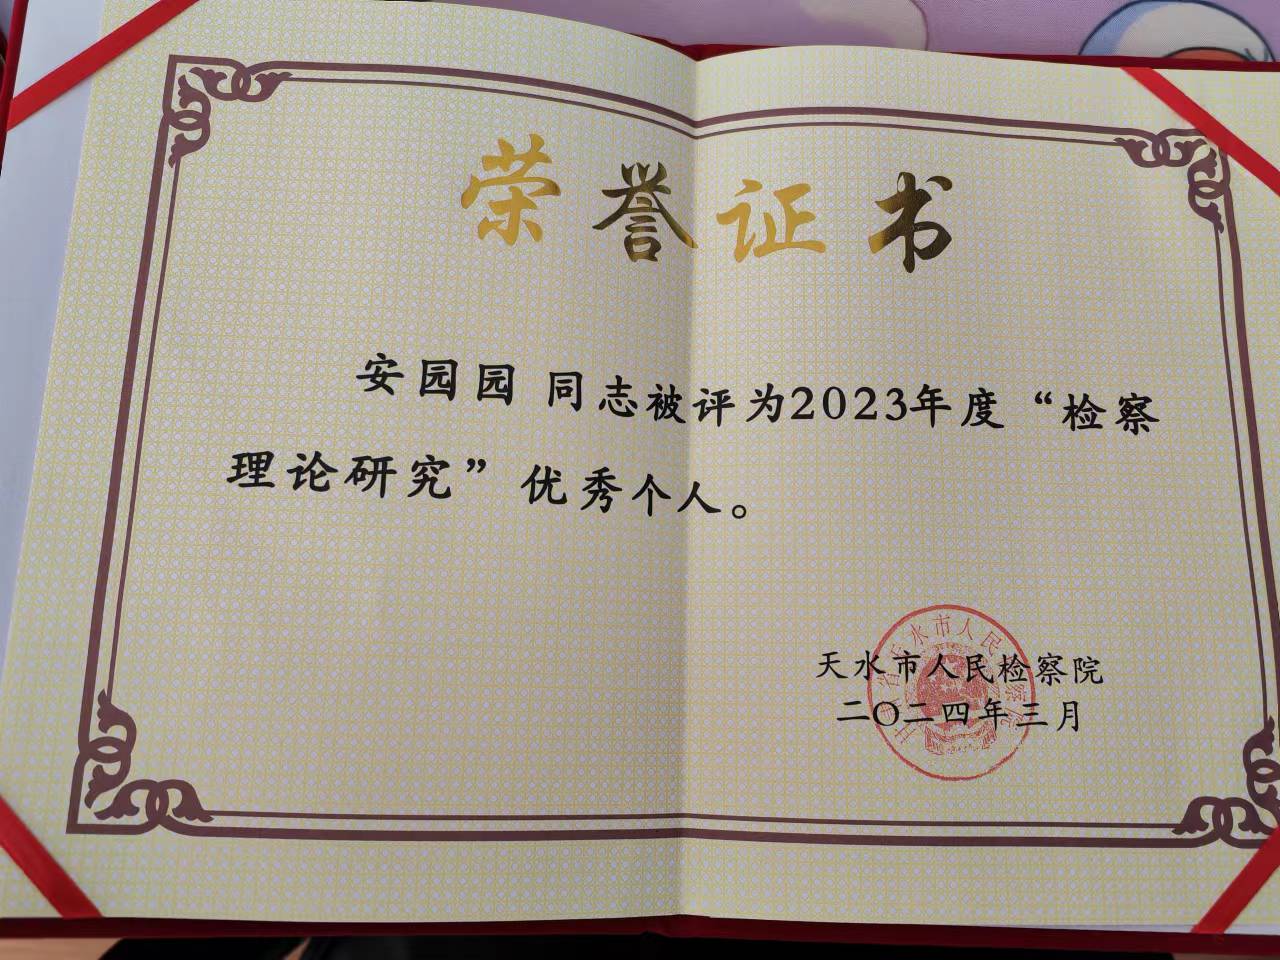 荣誉证书
安园园 同志被评为2023年度“检察
理论研究”优秀个人。
天水市人民检察院
二〇二四年三月